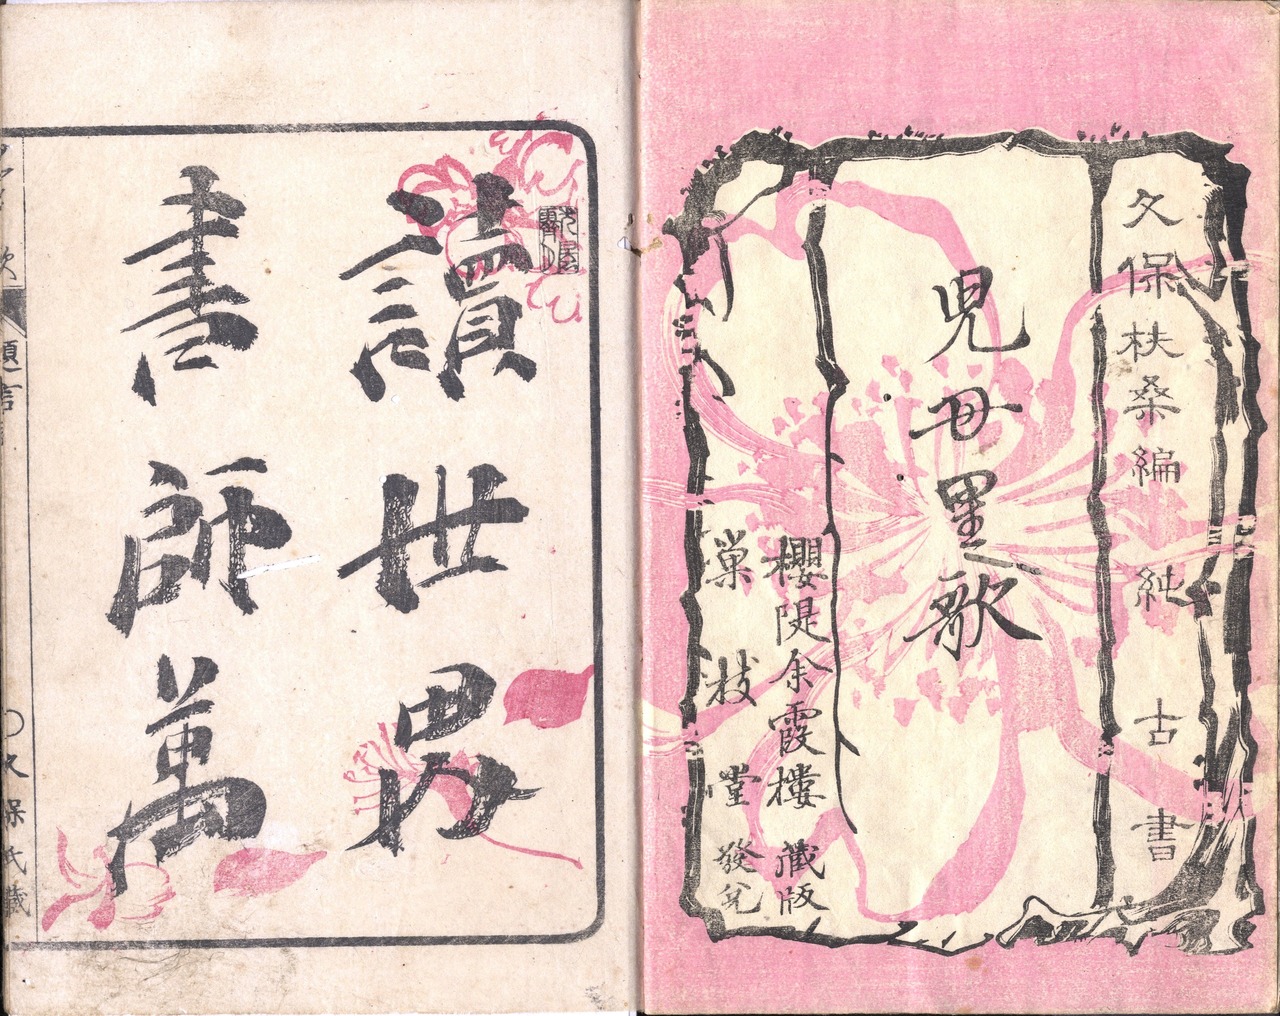 久保扶桑編 純古書
児毋里歌
櫻隄余霞樓藏版
巣枝堂發兌
讀世男
書師萬
題言 〇久保氏藏